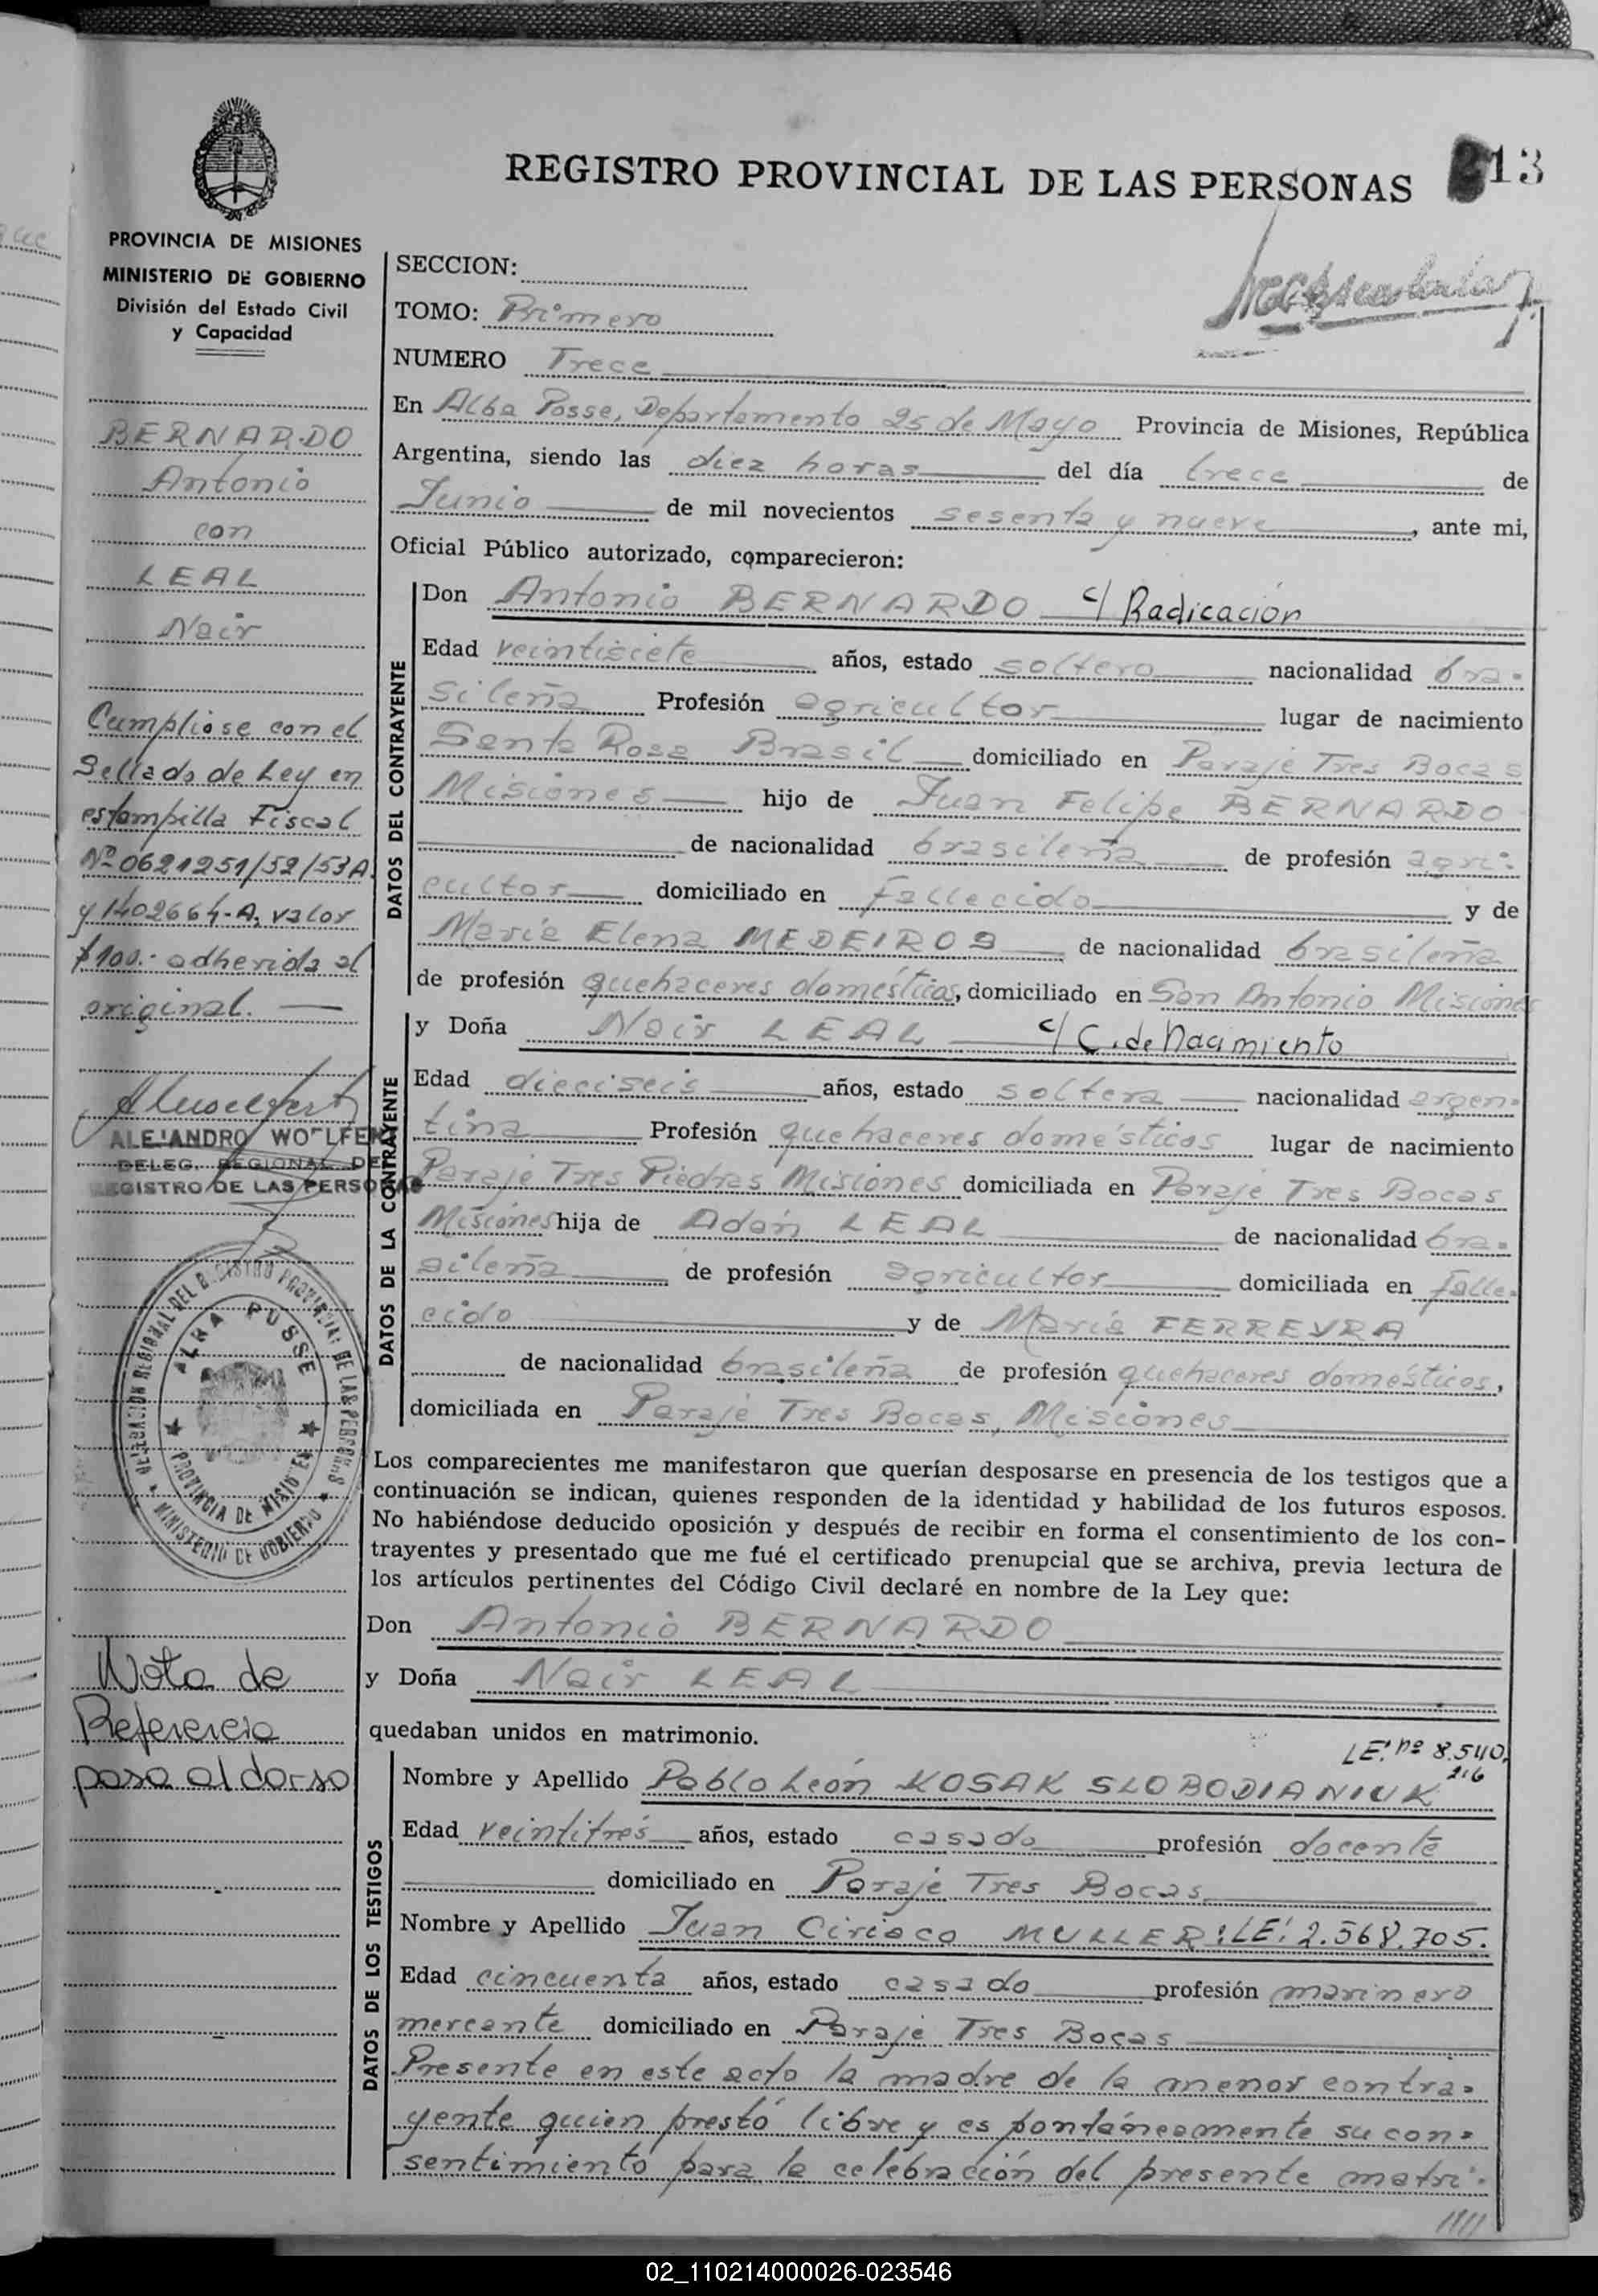 REGISTRO PROVINCIAL DE LAS PERSONAS
13
PROVINCIA DE MISIONES
MINISTERIO DE GOBIERNO
División del Estado Civil
y Capacidad
BERNARDO
Antonio
con
LEAL
Nair
Cumpliose con el
Sellado de Ley en
estampilla Fiscal
Nº 0621251/52/53A.
y 1402664-A, valor
$100.- adherida al
original.
ALEJANDRO WOLFEN
DELEG. REGIONAL DEL
REGISTRO DE LAS PERSONAS
DELEGACION REGIONAL DEL REGISTRO PROVINCIAL DE LAS PERSONAS
ALBA POSSE
PROVINCIA DE MISIONES
MINISTERIO DE GOBIERNO
Nota de
Referencia
pasa al dorso
SECCION:
TOMO: Primero
NUMERO Trece
En Alba Posse, Departamento 25 de Mayo Provincia de Misiones, República
Argentina, siendo las diez horas del día trece de
Junio de mil novecientos sesenta y nueve, ante mi,
Oficial Público autorizado, comparecieron:
DATOS DEL CONTRAYENTE
Don Antonio BERNARDO c/ Radicación
Edad veintisiete años, estado soltero nacionalidad bra-
sileña Profesión agricultor lugar de nacimiento
Santa Rosa Brasil domiciliado en Paraje Tres Bocas
Misiones hijo de Juan Felipe BERNARDO
de nacionalidad brasileña de profesión agri-
cultor domiciliado en fallecido y de
María Elena MEDEIROS de nacionalidad brasileña
de profesión quehaceres domésticos, domiciliado en San Antonio Misiones
DATOS DE LA CONTRAYENTE
y Doña Nair LEAL c/ C. de Nacimiento
Edad dieciseis años, estado soltera nacionalidad argen-
tina Profesión quehaceres domésticos lugar de nacimiento
Paraje Tres Piedras Misiones domiciliada en Paraje Tres Bocas
Misiones hija de Adán LEAL de nacionalidad bra-
sileña de profesión agricultor domiciliada en falle-
cido y de María FERREYRA
de nacionalidad brasileña de profesión quehaceres domésticos,
domiciliada en Paraje Tres Bocas, Misiones
Los comparecientes me manifestaron que querían desposarse en presencia de los testigos que a
continuación se indican, quienes responden de la identidad y habilidad de los futuros esposos.
No habiéndose deducido oposición y después de recibir en forma el consentimiento de los con-
trayentes y presentado que me fué el certificado prenupcial que se archiva, previa lectura de
los artículos pertinentes del Código Civil declaré en nombre de la Ley que:
Don Antonio BERNARDO
y Doña Nair LEAL
quedaban unidos en matrimonio.
LE. nº 8.540.
216
DATOS DE LOS TESTIGOS
Nombre y Apellido Pablo León KOSAK SLOBODIANIUK
Edad veintitrés años, estado casado profesión docente
domiciliado en Paraje Tres Bocas
Nombre y Apellido Juan Ciriaco MULLER: LE: 2.568.705.
Edad cincuenta años, estado casado profesión marinero
mercante domiciliado en Paraje Tres Bocas
Presente en este acto la madre de la menor contra-
yente quien prestó libre y espontáneamente su con-
sentimiento para la celebración del presente matri-
02_110214000026-023546